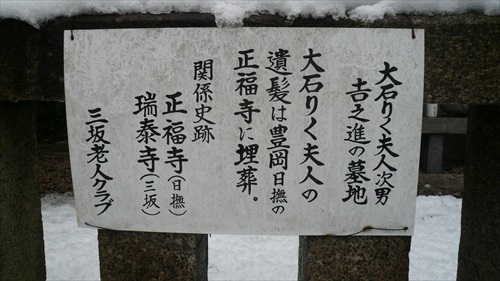 大石りく夫人次男
吉之進の墓地
大石りく夫人の
遺髪は豊岡日撫の
正福寺に埋葬。
関係史跡
正福寺(日撫)
瑞泰寺(三坂)
三坂老人クラブ